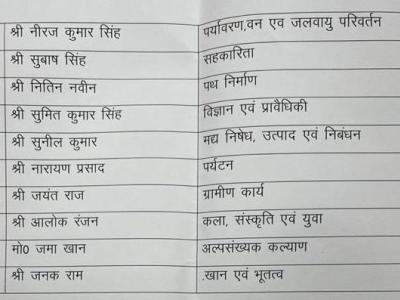 श्री नीरज कुमार सिंह पर्यावरण,वन एव जलवायु परिवर्तन
श्री सुबाष सिंह सहकारिता
श्री नितिन नवीन पथ निर्माण
श्री सुमित कुमार सिंह विज्ञान एवं प्रावैधिकी
श्री सुनील कुमार मद्य निषेध, उत्पाद एवं निबंधन
श्री नारायण प्रसाद पर्यटन
श्री जयंत राज ग्रामीण कार्य
श्री आलोक रंजन कला, संस्कृति एवं युवा
मो0 जमा खान अल्पसंख्यक कल्याण
श्री जनक राम .खान एवं भूतत्व